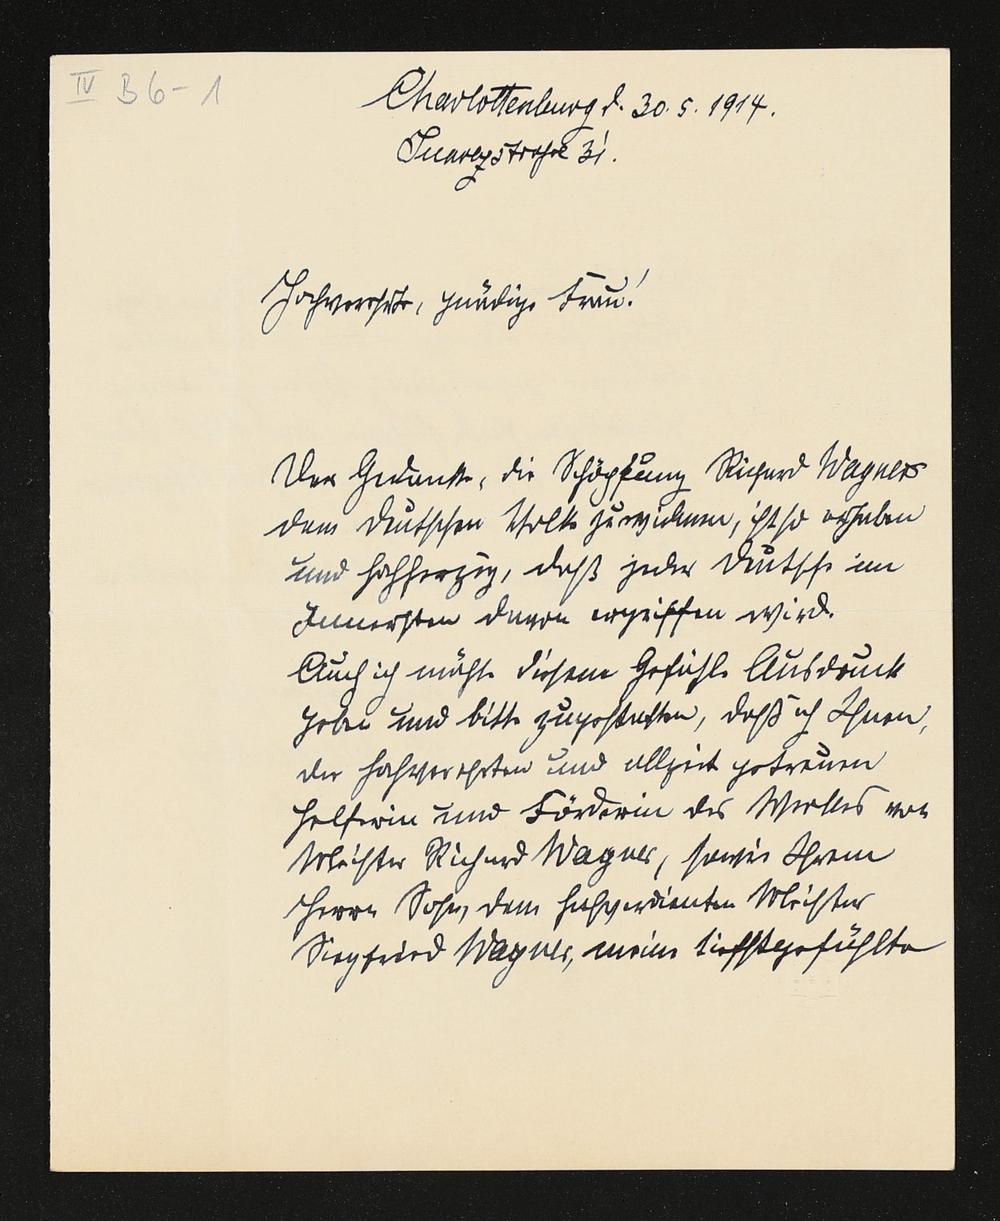 IV B 6-1
Charlottenburg d. 30.5.1914.
Suarezstraße 31.
Hochverehrte, gnädige Frau!
Der Gedanke, die Schöpfung Richard Wagners
dem deutschen Volke zu widmen, ist so erhaben
und hochherzig, daß jeder Deutsche im
Innersten davon ergriffen wird.
Auch ich möchte diesem Gefühle Ausdruck
geben und bitte zu gestatten, daß ich Ihnen,
der hochverehrten und allzeit getreuen
Helferin und Förderin des Werkes von
Meister Richard Wagner, sowie Ihrem
Herrn Sohn, dem hochverdienten Meister
Siegfried Wagner, meine tiefstgefühlte